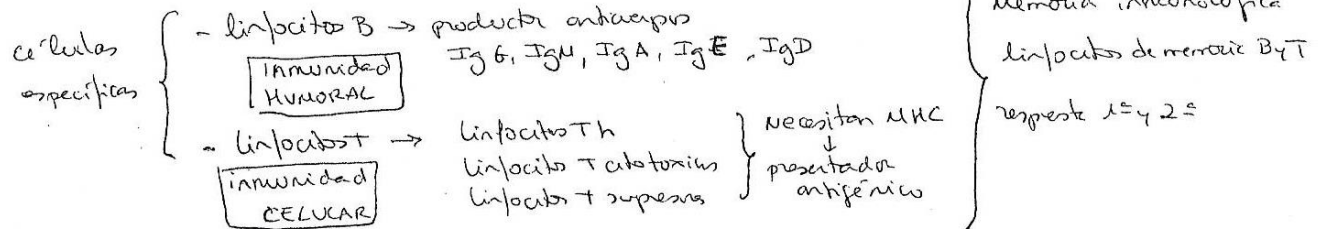 células
específicas
- linfocitos B → productor anticuerpos
IgG, IgM, IgA, IgE, IgD
inmunidad
HUMORAL
- linfocitos T →
inmunidad
CELULAR
linfocitos Th
linfocitos T citotoxicos
linfocitos T supresores
Necesitan MHC
↓
presentador
antigénico
Memoria inmunológica
linfocitos de memoria B y T
respuesta 1ª y 2ª